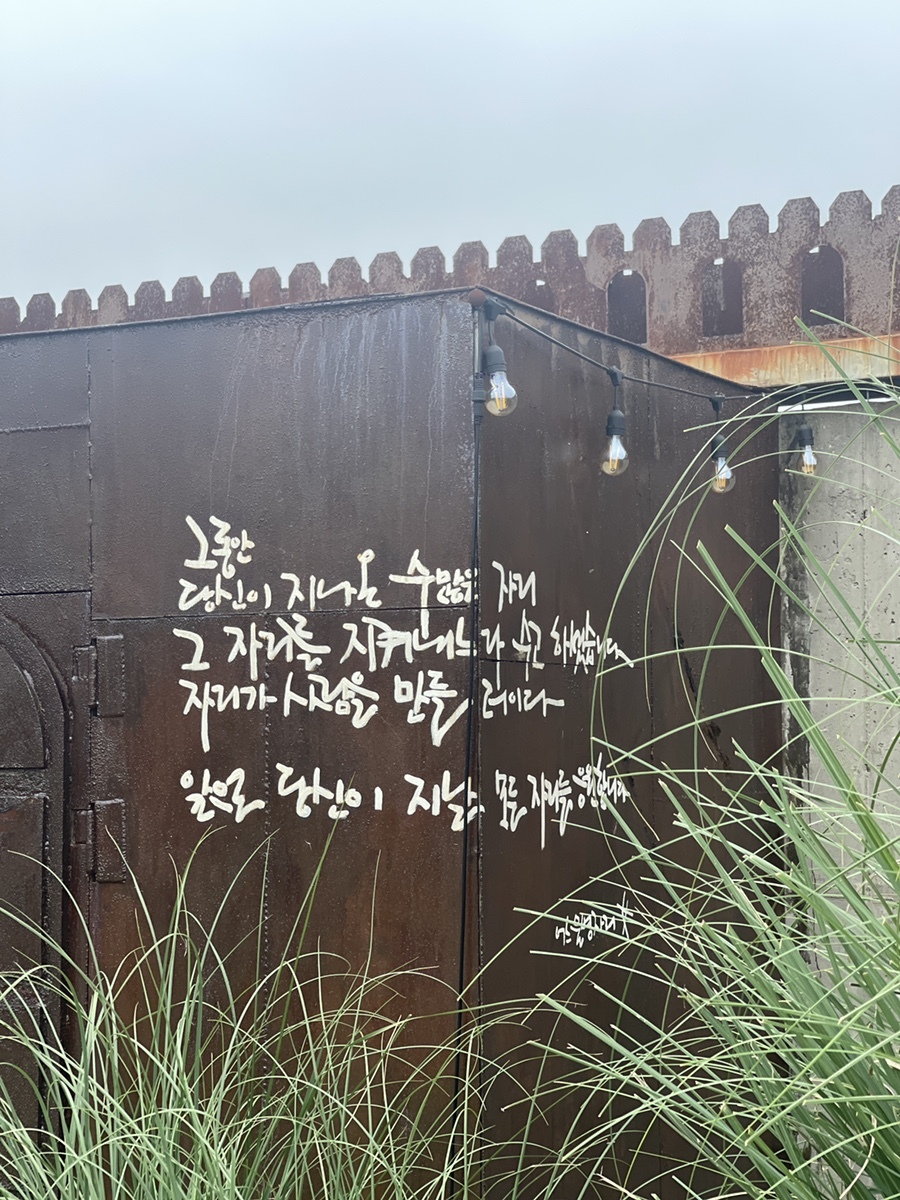 그동안
당신이 지나온 수많은 자리
그 자리를 지켜내느라 수고 하셨습니다
자리가 사람을 만들 터이다
앞으로 당신이 지날 모든 자리를 응원합니다